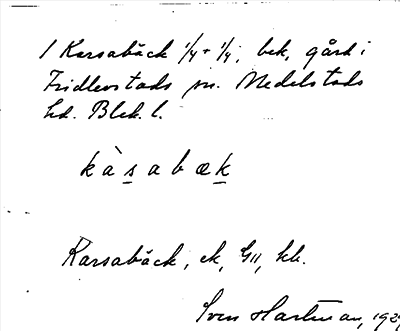 1 Karsabäck 1/4 + 1/4, bek, gård i
Fridlevstads sn. Medelstads
hd. Blek. l.
kàsabæk
Karsabäck, ek, G11, kb.
Sven Hartman, 192